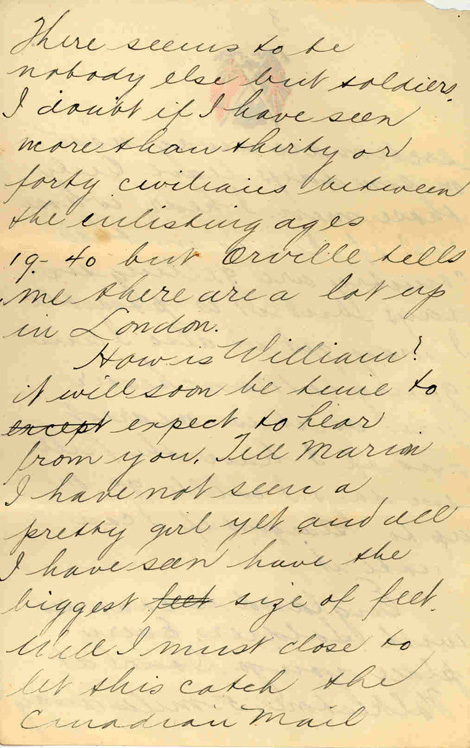 There seems to be
nobody else but soldiers.
I doubt if I have seen
more than thirty or
forty civilians between
the enlisting ages
19- 40 but Orville tells
me there are a lot up
in London.
How is William?
it will soon be time to
except expect to hear
from you. Tell Marion
I have not seen a
pretty girl yet and all
I have seen have the
biggest feet size of feet.
Well I must close to
let this catch the
Canadian Mail